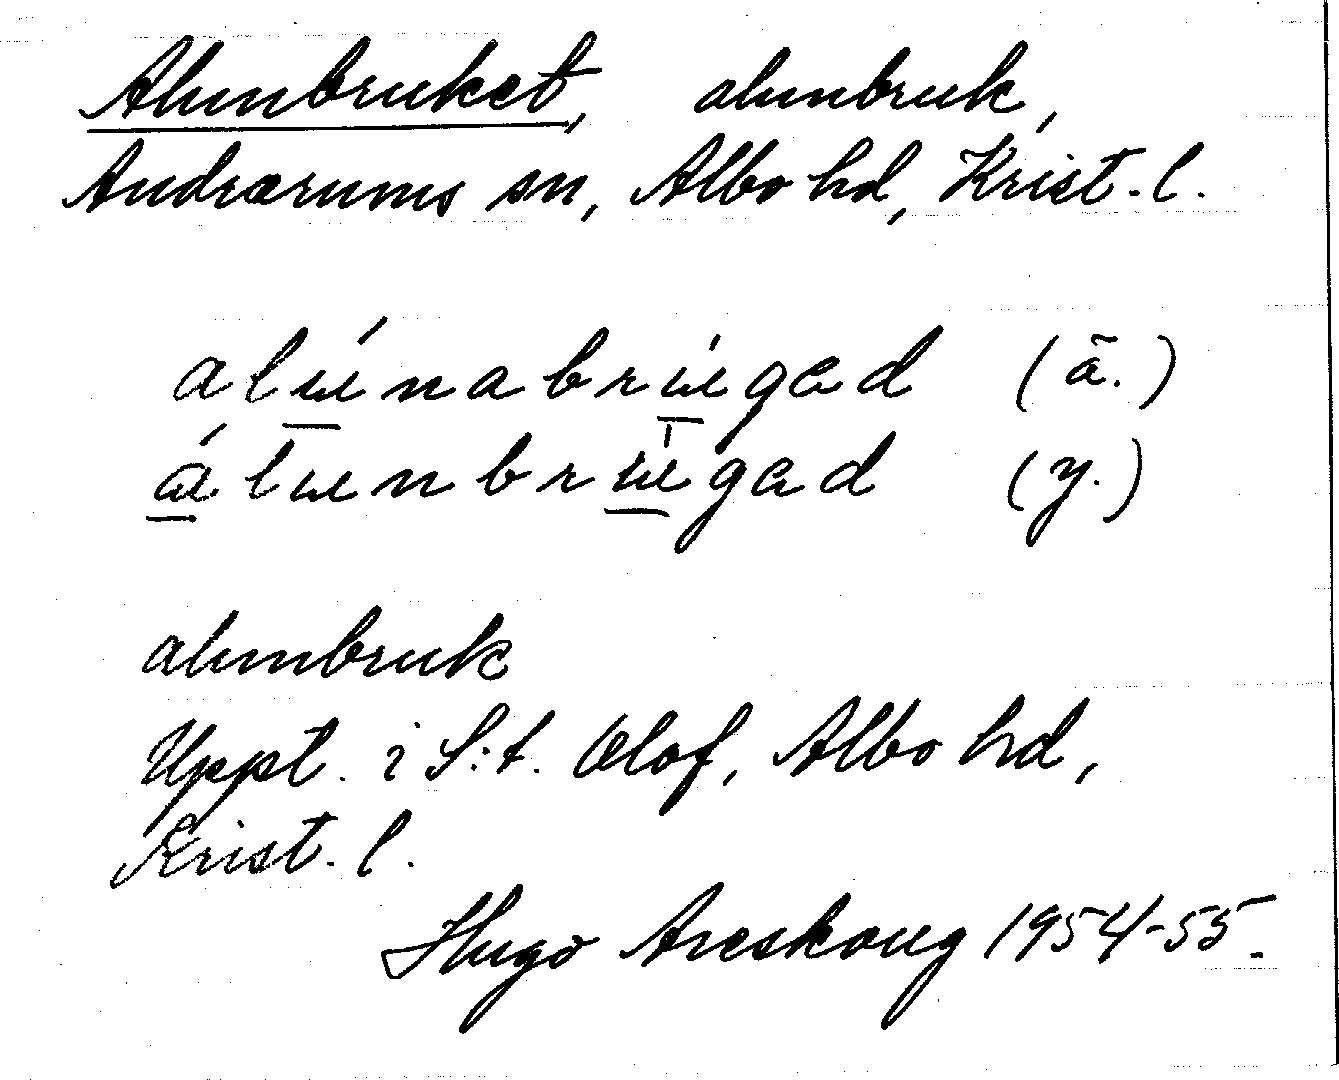 Alunbruket, alunbruk,
Andrarums sn, Albo hd, Krist. l.
alɯ́nabrɯ́gad (ä.)
álɯnbrɯ̄gad (y.)
alunbruk
Uppt. i S:t. Olof, Albo hd,
Krist. l.
Hugo Areskoug 1954-55.